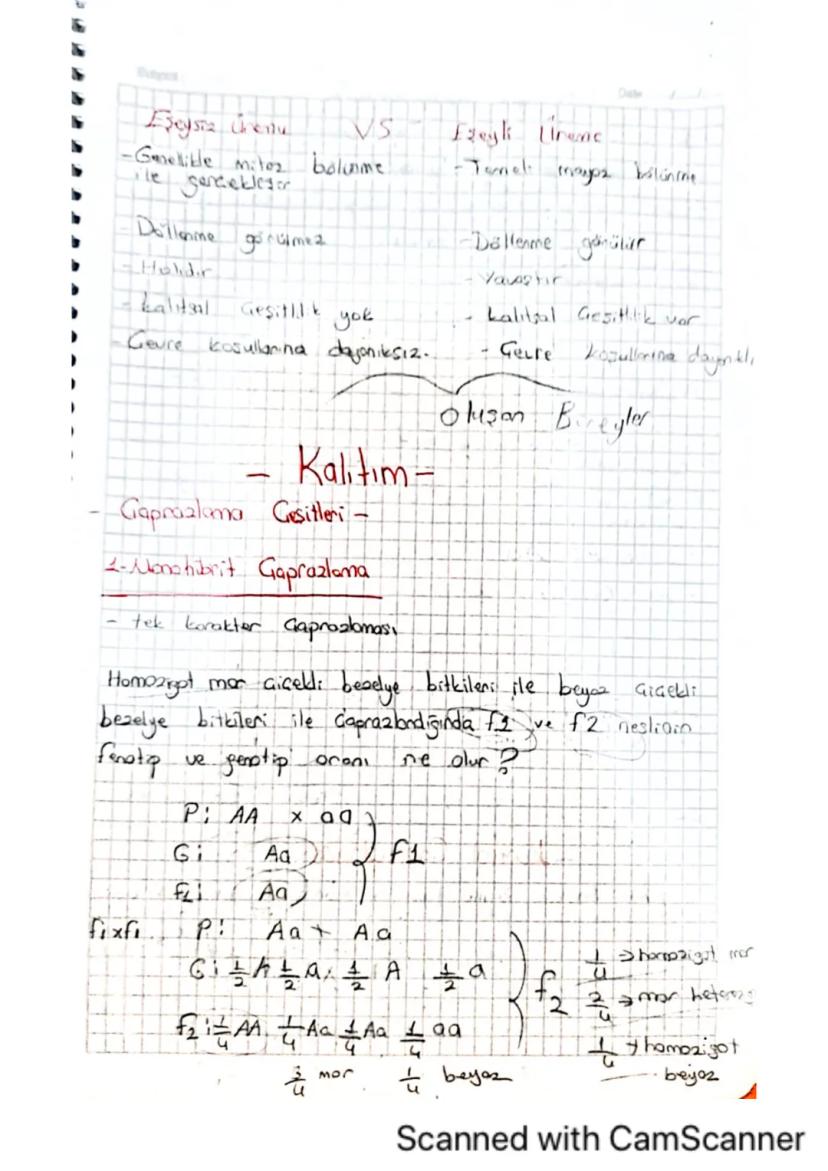 Eşeysiz Üreme VS Eşeyli Üreme
- Genellikle mitoz bölünme ile gerçekleşir
- Temeli mayoz bölünme
- Döllenme görülmez
- Döllenme görülür
- Hızlıdır
- Yavaştır
- kalıtsal Çeşitlilik yok
- kalıtsal Çeşitlilik var
- Çevre koşullarına dayanıksız.
- Çevre koşullarına dayanıklı
Oluşan Bireyler
- Kalıtım -
- Çaprazlama Çeşitleri -
1-Monohibrit Çaprazlama
- tek karakter Çaprazlaması
Homozigot mor çiçekli bezelye bitkileri ile beyaz çiçekli
bezelye bitkileri ile Çaprazlandığında f1 ve f2 neslinin
fenotip ve genotip oranı ne olur?
P: AA x aa
G: Aa
f1: Aa
f1
f1xf1 P: Aa + Aa
G: 1/2 A 1/2 a, 1/2 A 1/2 a
f2: 1/4 AA 1/4 Aa 1/4 Aa 1/4 aa
3/4 mor 1/4 beyaz
f2
1/4 → homozigot mor
2/4 → mor heteroz
1/4 → homozigot
beyaz
Scanned with CamScanner